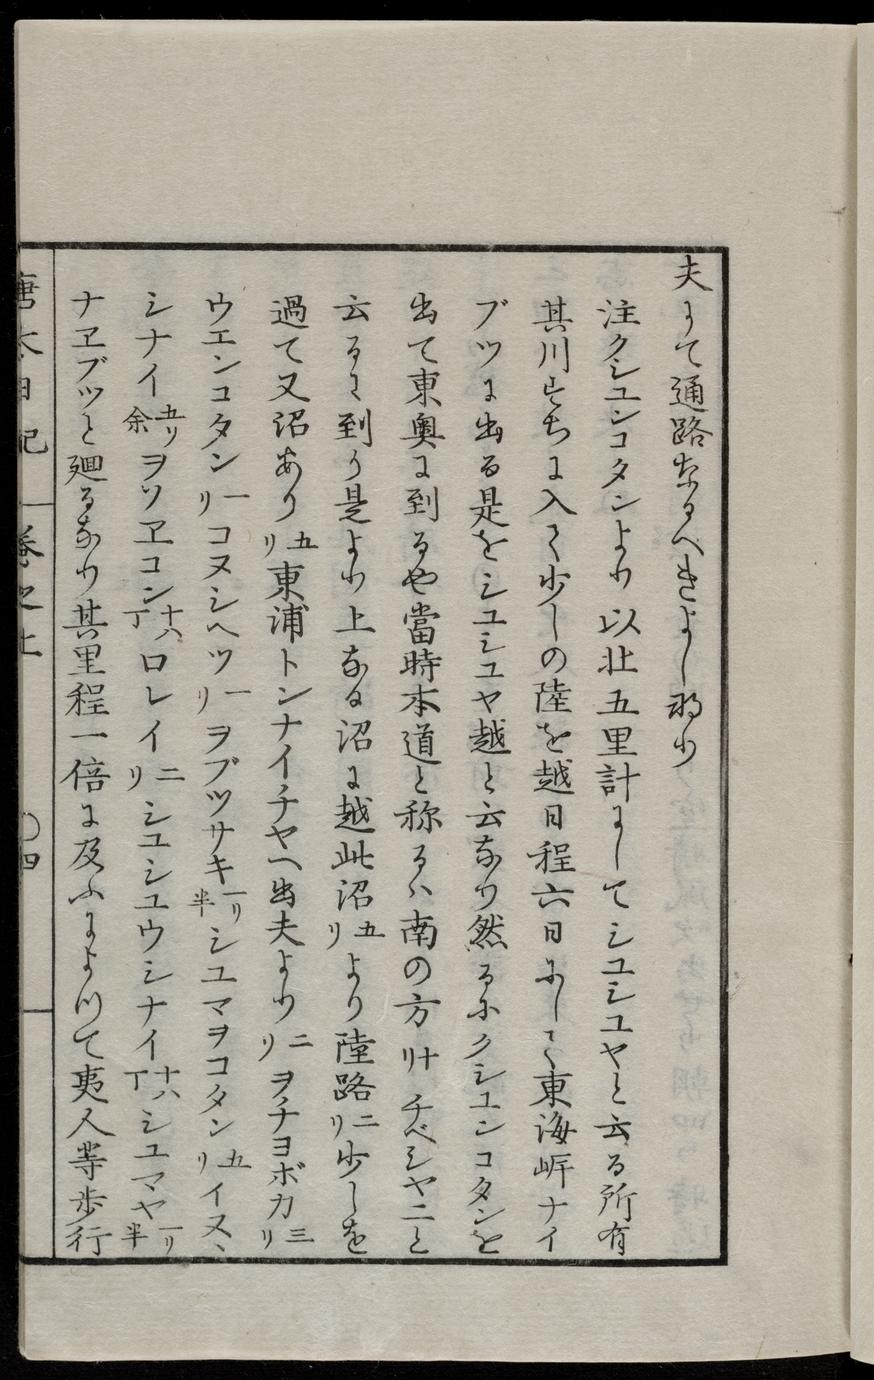 夫にて通路なるへきよし那り
注クシユンコタンより以北五里計にしてシユシユヤと云る所有
其川すちに入て少しの陸を越日程六日にして東海岸ナイ
ブツに出る是をシユシユヤ越と云なり然るにクシユンコタンを
出て東奥に到るや當時本道と称るハ南の方十リチベシヤニと
云るに到り是より上なる沼に越此沼五リより陸路二リ少しを
過て又沼あり五リ東浦トンナイチヤへ出夫より二リヲチヨボカ三リ
ウエンコタン一リコヌシヘツ一リヲブツサキ一リ半シユマヲコタン五リイヌヽ
シナイ五リ余ヲソヱコン十八丁ロレイ二リシユシユウシナイ十八丁シユマヤ一リ半
ナヱブツと廻るなり其里程一倍に及ふによつて夷人等歩行
唐太日記 巻之上 〇四